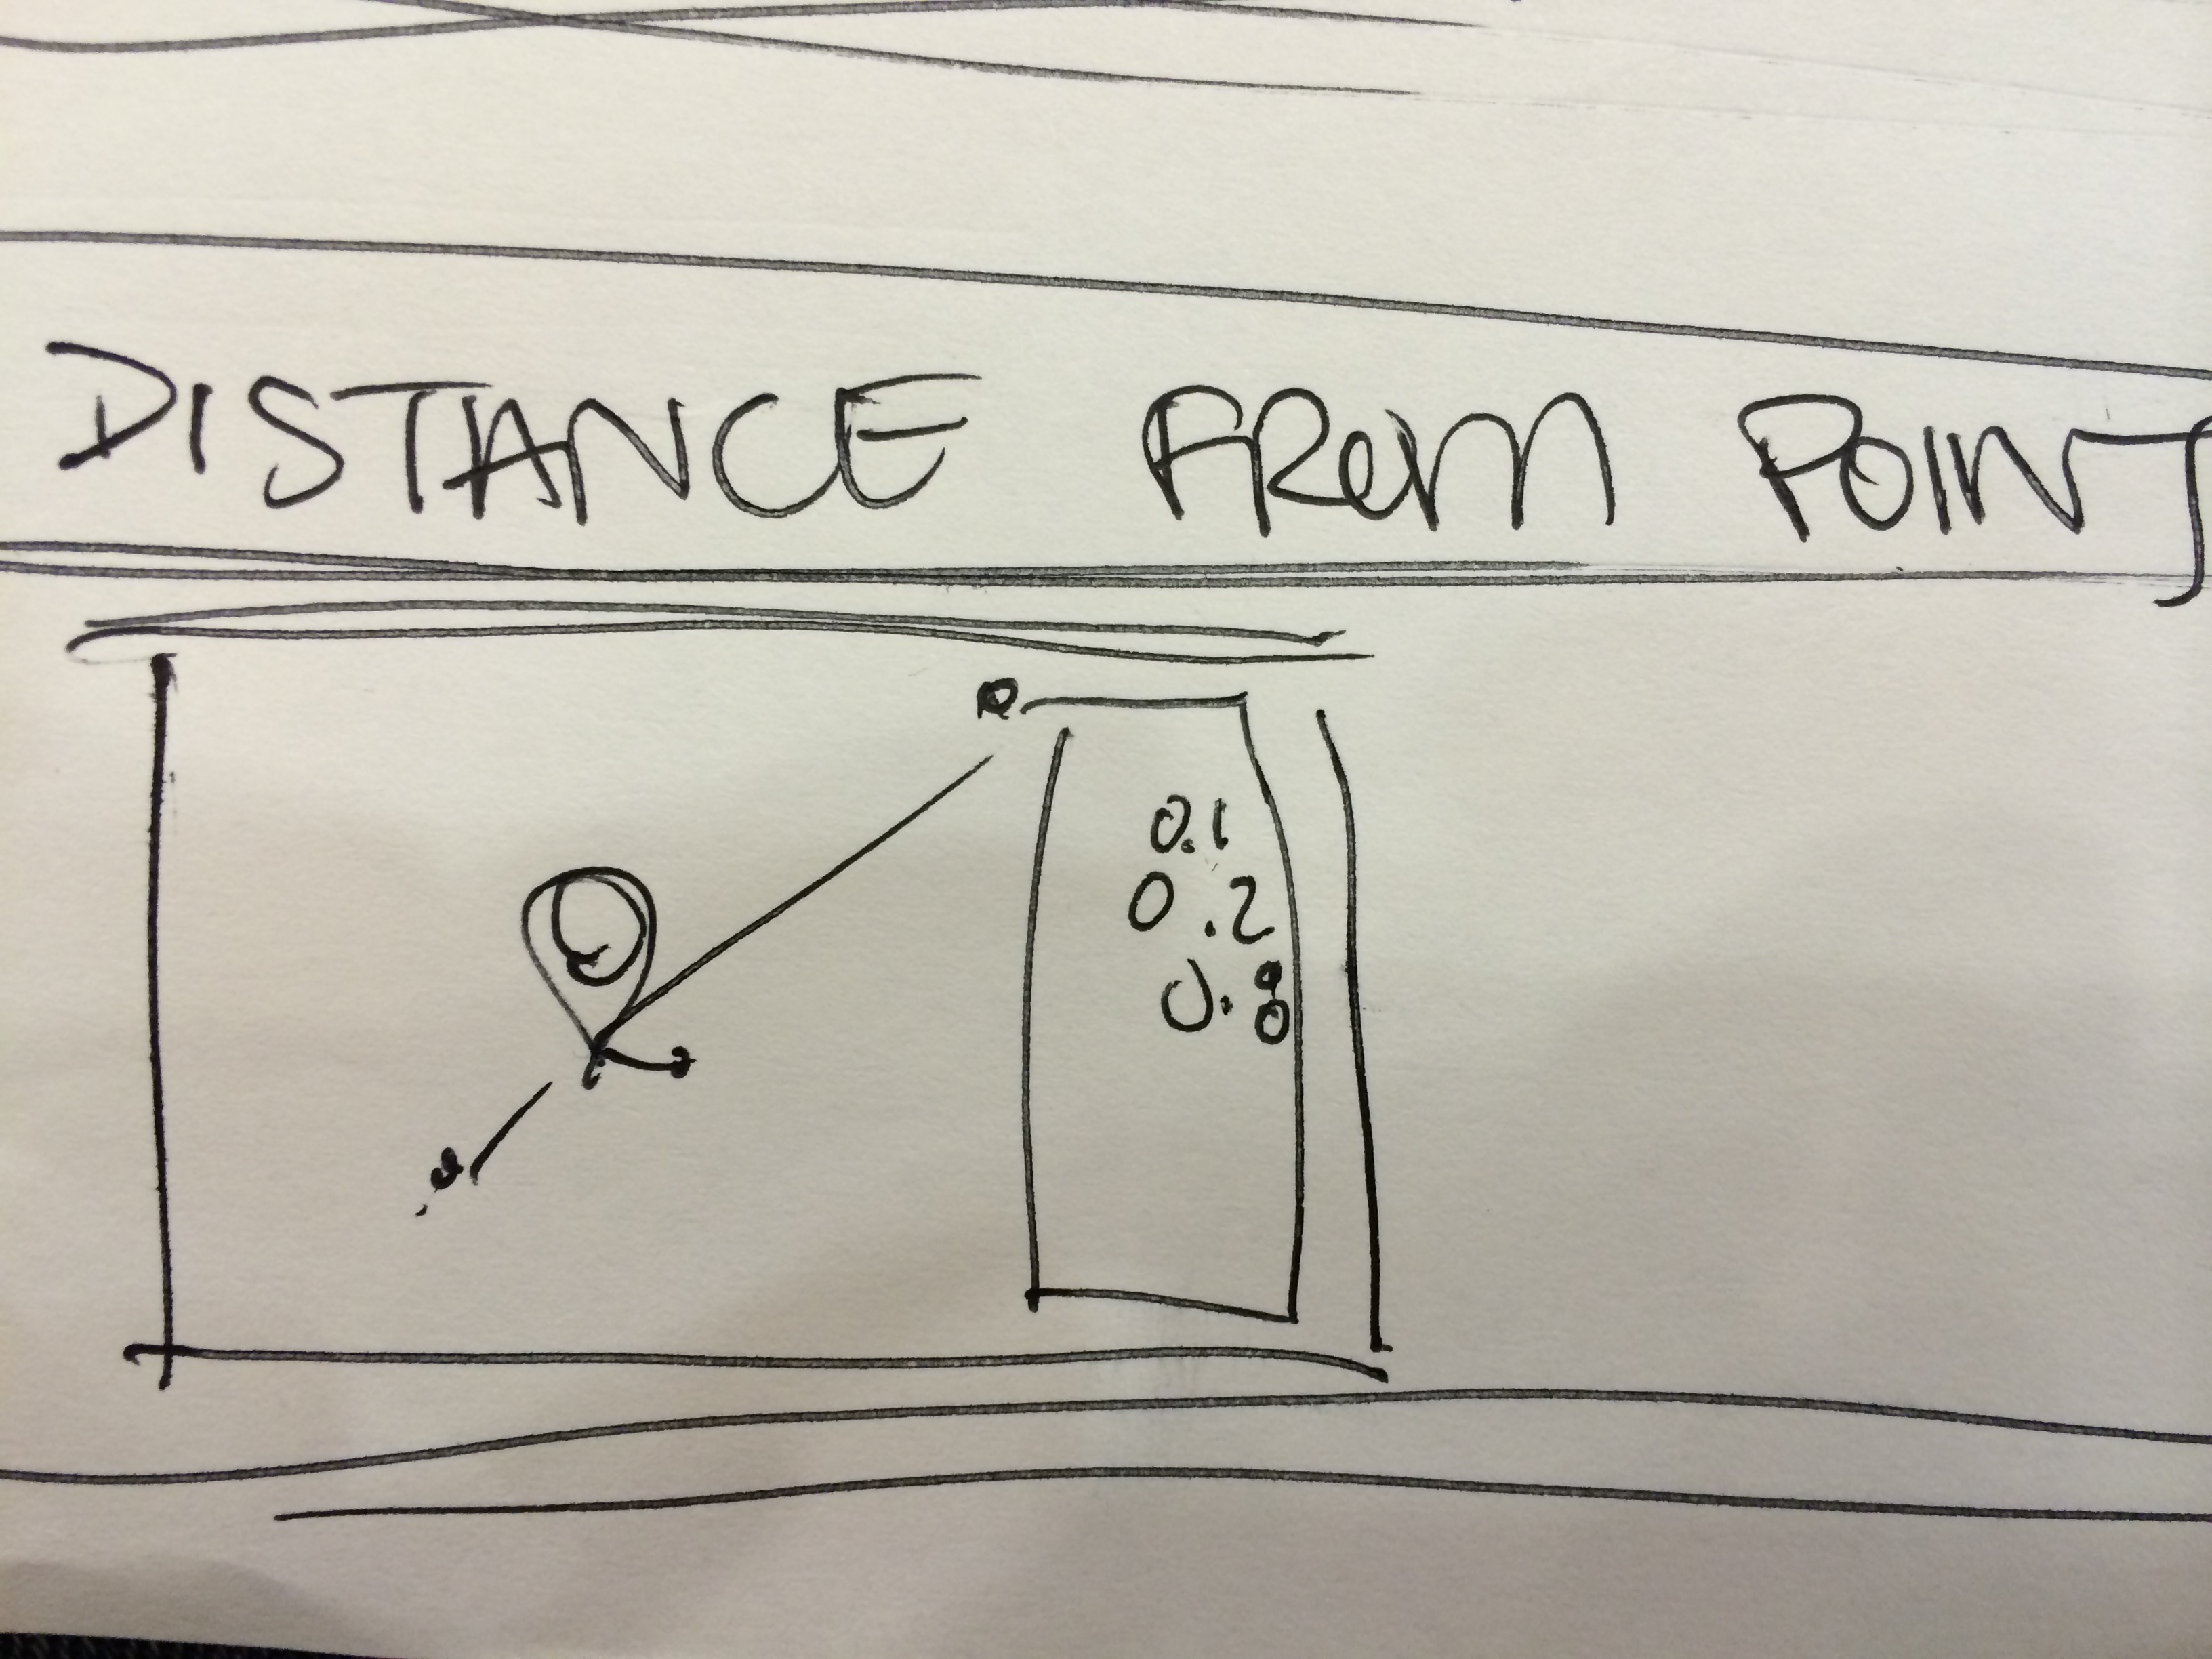 DISTANCE FROM POINT
0.1
0.2
0.8